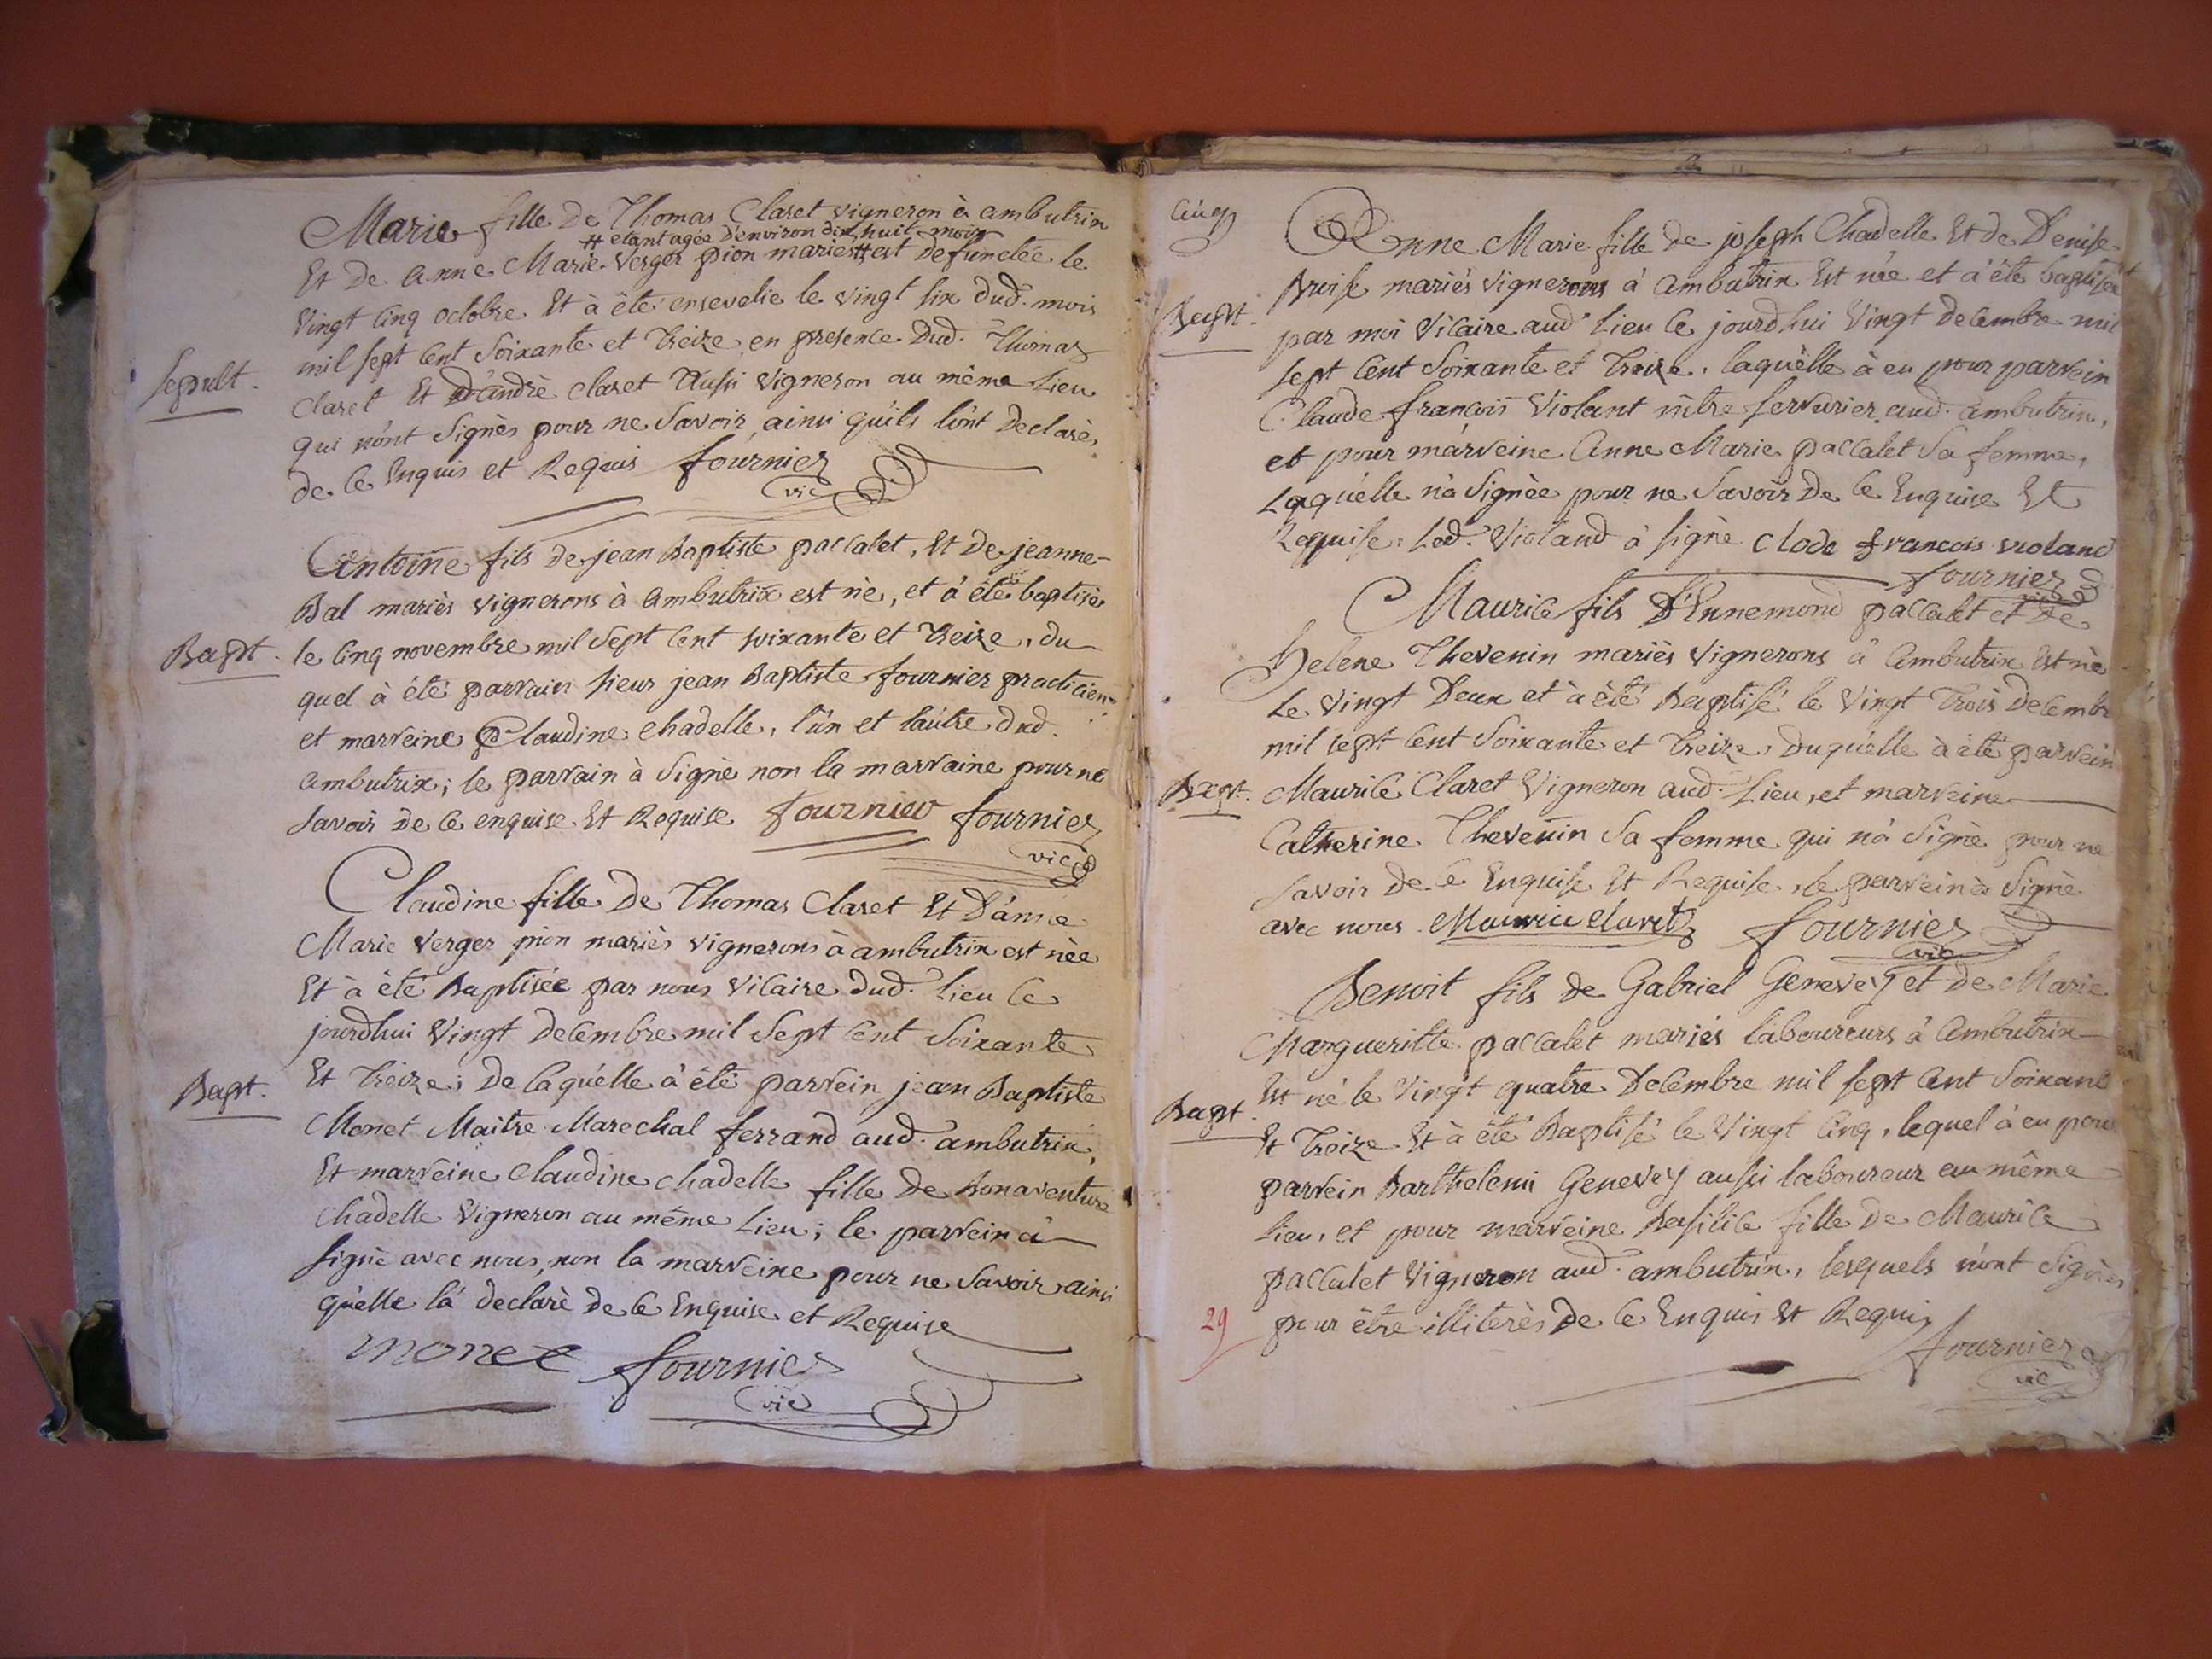 Marie fille De Thomas Claret vigneron à ambutrix
# etant agée d'environ dix huit mois
Et De anne Marie Verger pion mariés # est defunctée le
Vingt Cinq octobre Et à été ensevelie le vingt six dud. mois
mil sept Cent Soixante et Treize en presence Dud. Thomas
Sepult.
Claret Et d'andrè Claret Aussi Vigneron au même Lieu
qui n'ont Signès pour ne Savoir, ainsi qu'ils l'ont Declarè,
de Ce Enquis et Requis fournier
vic
Antoine fils de jean Baptiste paccalet, Et De jeanne
Bal mariès vignerons à Ambutrix est nè, et à été baptisè
Bapt.
le Cinq novembre mil Sept Cent soixante et Treize, du
quel à été parrain sieur jean Baptiste fournier practicien
et marreine Claudine Chadelle, l'ùn et laùtre dud.
ambutrix; le parrain à Signè non la marraine pour ne
Savoir De Ce enquise Et Requise fournier fournier
vic
Claudine fille De Thomas Claret Et D'anne
Marie Verger pion mariès vignerons à ambutrix est nèe
Et à été Baptisée par nous Vicaire Dud. Lieu Ce
jourdhui Vingt Decembre mil Sept Cent Soixante
Bapt.
Et Treize; De laquélle à été parrein jean Baptiste
Monet Maitre Marechal ferrand aud. ambutrix,
Et marreine Claudine Chadelle fille De Bonaventure
Chadelle Vigneron au même Lieu; le parrein à
signè avec nous, non la marreine pour ne Savoir ainsi
qu'elle là declarè De Ce Enquise et Requise
monet fournier
vic
Cinq
Anne Marie fille de joseph Chadelle Et de Denise
Broise mariés vignerons à Ambutrix Est née et à été baptisée
Bapt.
par moi Vicaire aud. Lieu Ce jourdhui Vingt Decembre mil
sept Cent Soixante et Treize, laquèlle à eu pour parrein
Claude francois Violant mtre serrurier aud. ambutrix,
et pour marreine Anne Marie paccalet Sa femme,
Laquélle nà Signèe pour ne Savoir De Ce Enquise Et
Requise, Led. Violand à signè Clode francois violand
fournier
vic
Maurice fils D'Ennemond paccalet et De
Helene Thevenin mariès vignerons à Ambutrix Est nè
Le Vingt Deux et à été Baptisé le Vingt Trois Decembre
mil sept Cent Soixante et Treize, Duquélle à été parrein
Bapt.
Maurice Claret Vigneron aud. Lieu, et marreine
Catherine Thevenin Sa femme qui nà Signè pour ne
Savoir De Ce Enquise Et Requise, le parrein à Signè
avec nous. Maurice Claret fournier
vic
Benoit fils de Gabriel Genevey et de Marie
Margueritte paccalet mariés laboureurs à Ambutrix
Est né le Vingt quatre Decembre mil sept Cent Soixante
Bapt.
Et Treize Et à été Baptisé le Vingt Cinq, lequel à eu pour
parrein Barthelemi Genevey aussi laboureur au même
Lieu, et pour marreine Basilice fille De Maurice
paccalet Vigneron aud. ambutrix, lesquels n'ont Signès
29
pour être illiterès De Ce Enquis Et Requis
fournier
vic